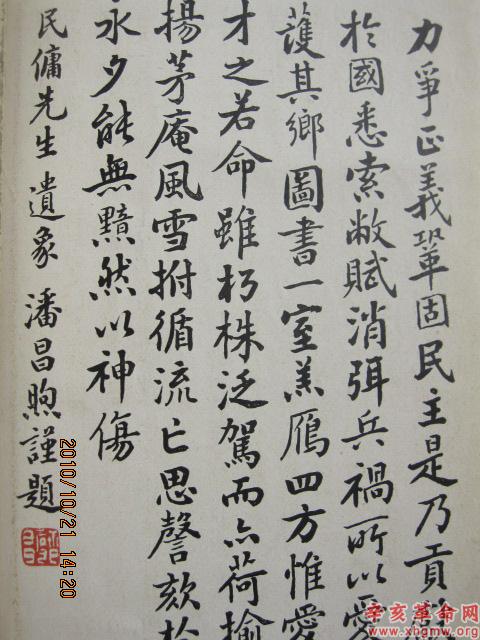 力爭正義鞏固民主是乃貢獻
於國悉索敝賦消弭兵禍所以愛
護其鄉圖書一室羔雁四方惟愛
才之若命雖朽株泛駕而亦荷揄
揚茅庵風雪拊循流亡思謦欬於
永夕能無黯然以神傷
民傭先生遺象 潘昌煦謹題
2010/10/21 14:20
辛亥革命网
www.xhgmw.org